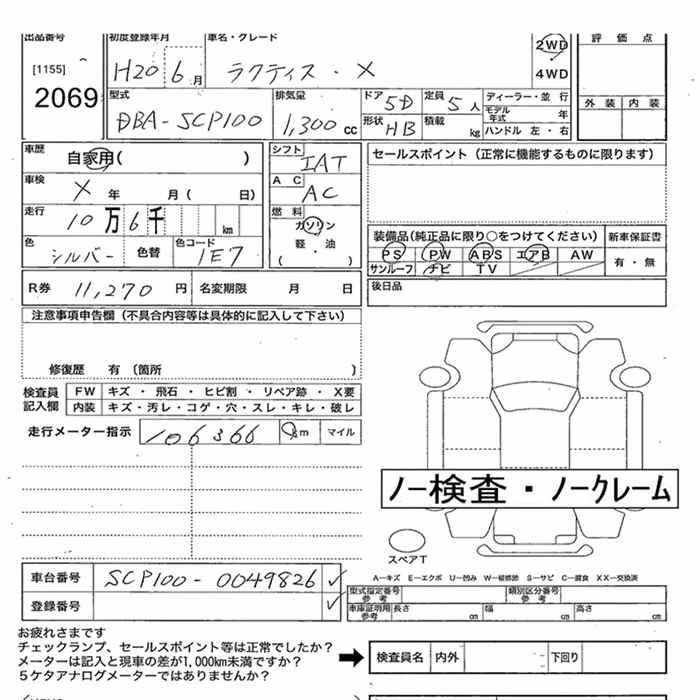 出品番号 初度登録年月 車名・グレード 2WD 評価点
[1155] H20 6月 ラクティス・X 4WD
2069 型式 排気量 ドア 5D 定員 5人 ディーラー・並行 外装 内装
DBA-SCP100 1,300cc 形状 HB 積載 kg モデル年式 年
ハンドル 左・右
車歴 自家用( ) シフト IAT セールスポイント(正常に機能するものに限ります)
車検 X 年 月( 日) AC AC
走行 10万6千 km 燃料 ガソリン
軽・油
( )
色 シルバー 色替 色コード 1E7
装備品(純正品に限り○をつけてください) 新車保証書
PS PW ABS エアB AW 有・無
サンルーフ ナビ TV
R券 11,270円 名変期限 月 日 後日品
注意事項申告欄(不具合内容等は具体的に記入して下さい)
修復歴 有(箇所 )
検査員記入欄 FW キズ・飛石・ヒビ割・リペア跡・X要
内装 キズ・汚レ・コゲ・穴・スレ・キレ・破レ
走行メーター指示 106366 km マイル
ノー検査・ノークレーム
スペアT
A―キズ E―エクボ U―凹み W―補修跡 S―サビ C―腐食 XX―交換済
車台番号 SCP100-0049826
登録番号
型式指定番号 参考 類別区分番号 参考
車庫証明用 参考 長さ cm 幅 cm 高さ cm
お疲れさまです
チェックランプ、セールスポイント等は正常でしたか?
メーターは記入と現車の差が1,000km未満ですか?
5ケタアナログメーターではありませんか?
検査員名 内外 下回り